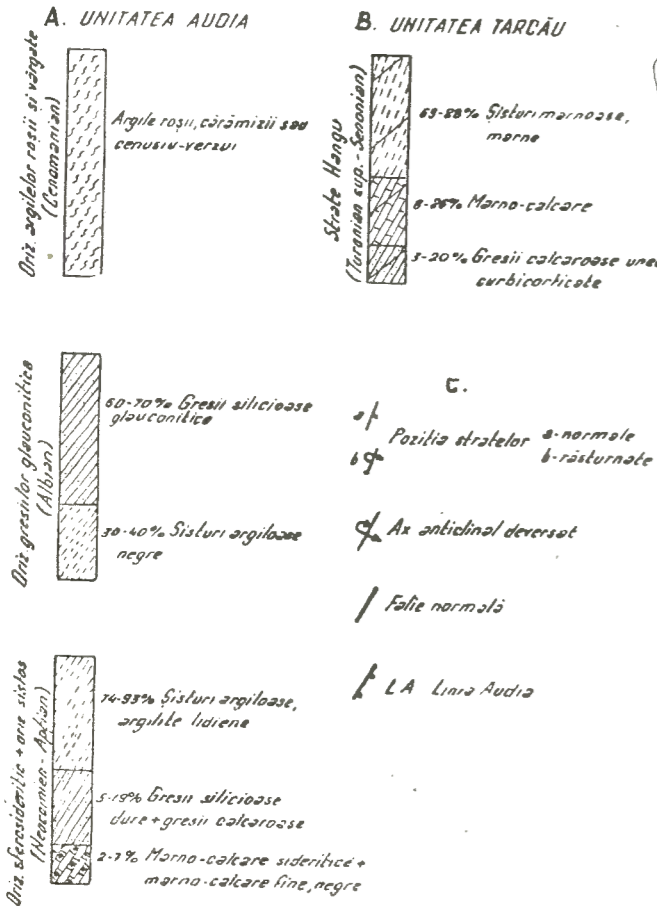 A. UNITATEA AUDIA
Oriz. argilelor roșii si vărgate
(Cenomanian)
Argile roșii, cărămizii sau
cenusiu-verzui
Oriz. gresiilor glauconitice
(Albian)
60-70% Gresii silicioase
glauconitice
30-40% Sisturi argiloase
negre
Oriz. sferosideritic + oriz sistos
(Neocomian - Aptian)
74-93% Șisturi argiloase,
argilite lidiene
5-19% Gresii silicioase
dure + gresii calcaroase
2-7% Marno-calcare sideritice +
marno-calcare fine, negre
B. UNITATEA TARCĂU
Strate Hangu
(Turonian sup.-Senonian)
69-88% Șisturi marnoase,
marne
Marno-calcare
3-20% Gresii calcaroase
curbicorticate
C.
a
b
Pozitia stratelor a-normale
b-răsturnate
Ax anticlinal deversat
Falie normală
L A Linia Audia